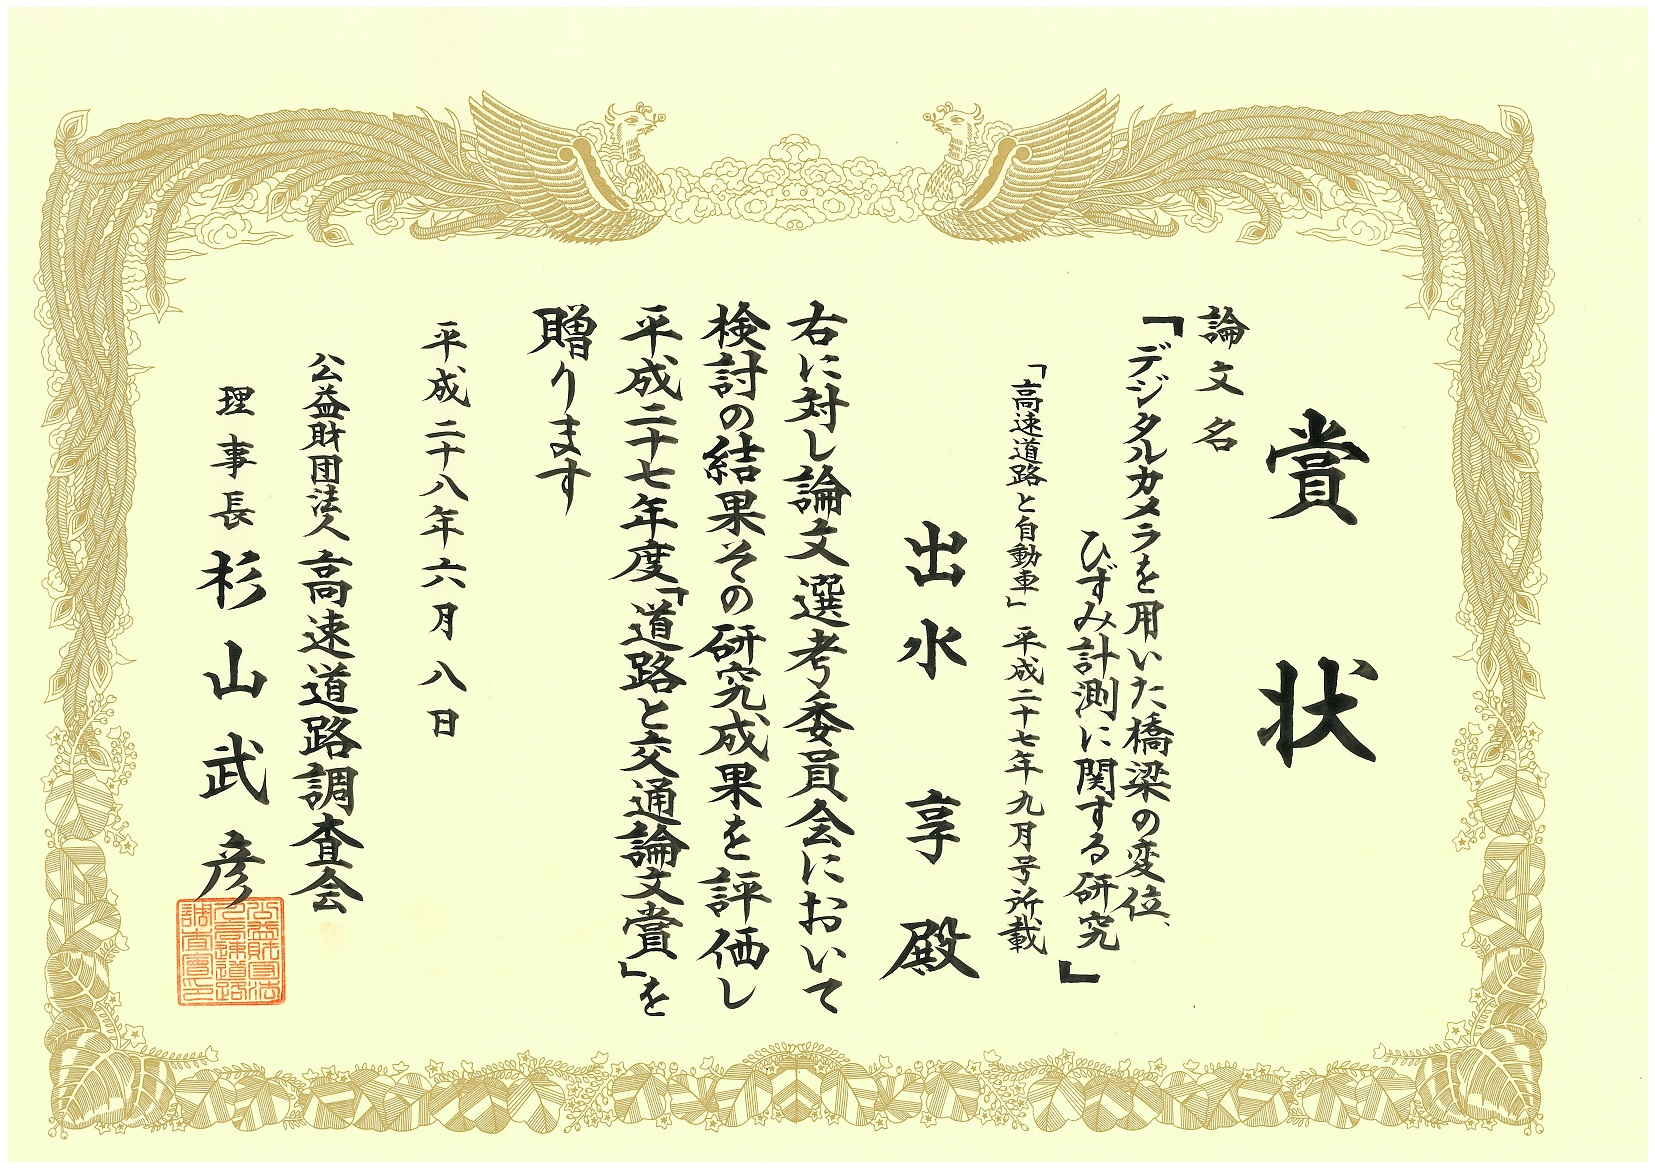 賞状
論文名
「デジタルカメラを用いた橋梁の変位、
ひずみ計測に関する研究」
「高速道路と自動車」平成二十七年九月号所載
出水享殿
右に対し論文選考委員会において
検討の結果その研究成果を評価し
平成二十七年度「道路と交通論文賞」を
贈ります
平成二十八年六月八日
公益財団法人高速道路調査会
理事長杉山武彦
公益財団法
人高速道路
調査會印